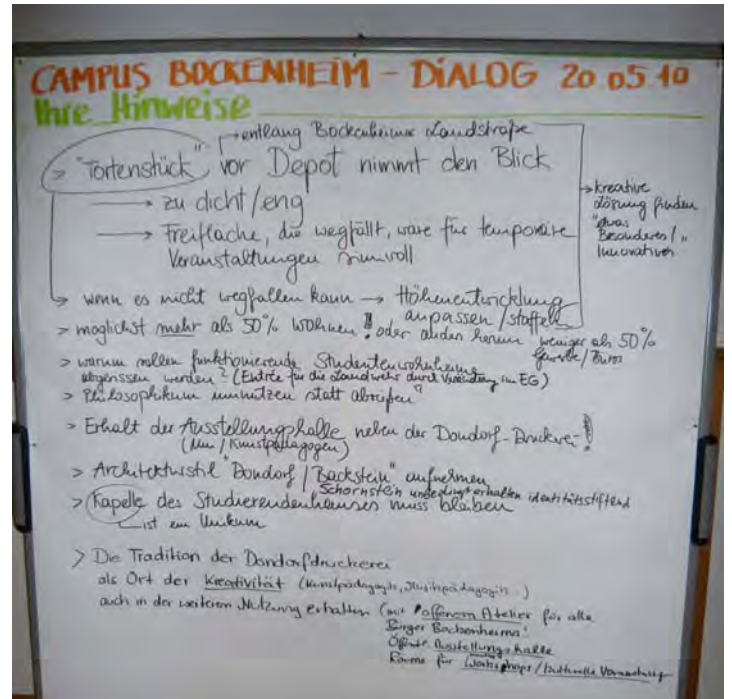 CAMPUS BOCKENHEIM - DIALOG 20.05.10
Ihre Hinweise
→ entlang Bockenheimer Landstraße
> "Tortenstück" vor Depot nimmt den Blick
→ zu dicht/eng
→ Freifläche, die wegfällt, wäre für temporäre
Veranstaltungen sinnvoll
→ kreative
Lösung finden
"etwas
Besonderes/"
Innovatives
→ wenn es nicht wegfallen kann → Höhenentwicklung
anpassen/staffeln
> möglichst mehr als 50% Wohnen! oder anders herum weniger als 50%
Gewerbe/Büros
> warum sollen funktionierende Studentenwohnheime
abgerissen werden? (Entrée für die Landwehr durch Veränderung im EG)
> Philosophikum umnutzen statt abreißen?
> Erhalt der Ausstellungshalle neben der Dondorf-Druckerei!
(Kunstpädagogen)
> Architekturstil "Dondorf/Backstein" aufnehmen
Schornstein unbedingt erhalten identitätsstiftend
> Kapelle des Studierendenhauses muss bleiben
ist ein Unikum
> Die Tradition der Dondorfdruckerei
als Ort der Kreativität (Kunstpädagogik, Musikpädagogik..)
auch in der weiteren Nutzung erhalten (mit "offenem Atelier für alle
Bürger Bockenheims"
Öffentl. Ausstellungshalle
Räume für Workshops/kulturelle Veranstaltung